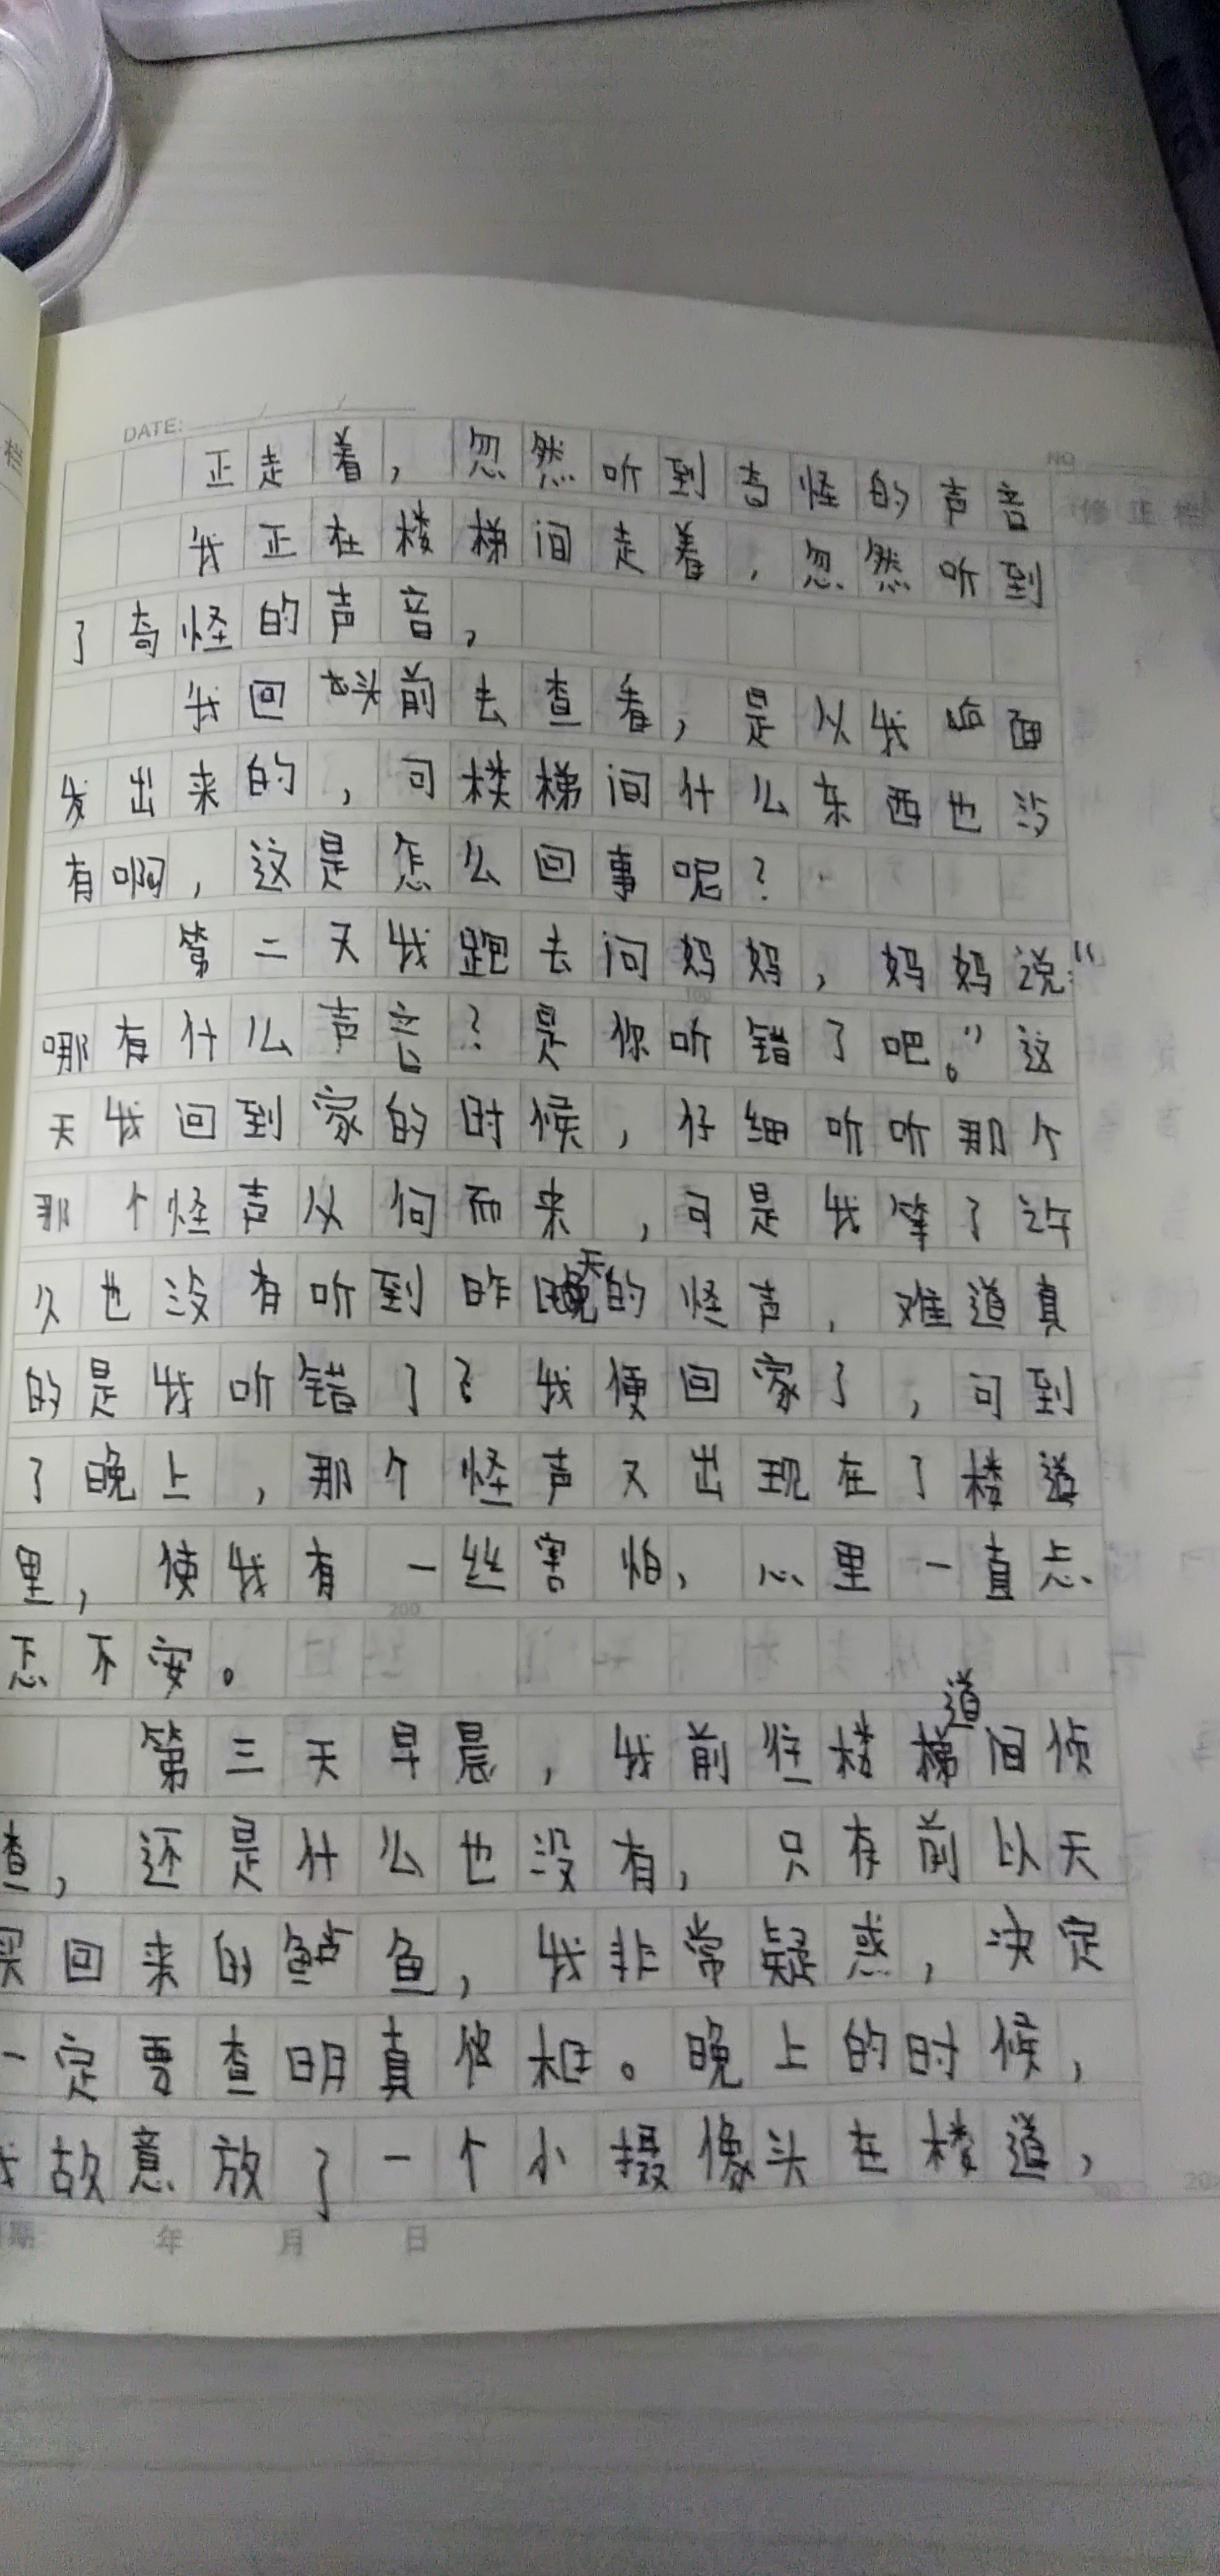 DATE:
NO
修正栏
栏
正走着，忽然听到奇怪的声音
我正在楼梯间走着，忽然听到
了奇怪的声音，
我回头前去查看，是从我面
发出来的，可楼梯间什么东西也没
有啊，这是怎么回事呢？
第二天我跑去问妈妈，妈妈说：“
哪有什么声音？是你听错了吧。”这
天我回到家的时候，仔细听听那个
那个怪声从何而来，可是我等了许
久也没有听到昨天的怪声，难道真
的是我听错了？我便回家了，可到
了晚上，那个怪声又出现在了楼道
里，使我有一丝害怕，心里一直忐
忑不安。
200
第三天早晨，我前往楼道间侦
查，还是什么也没有，只有前以天
买回来的鱼，我非常疑惑，决定
一定要查明真相。晚上的时候，
我故意放了一个小摄像头在楼道，
期 年 月 日